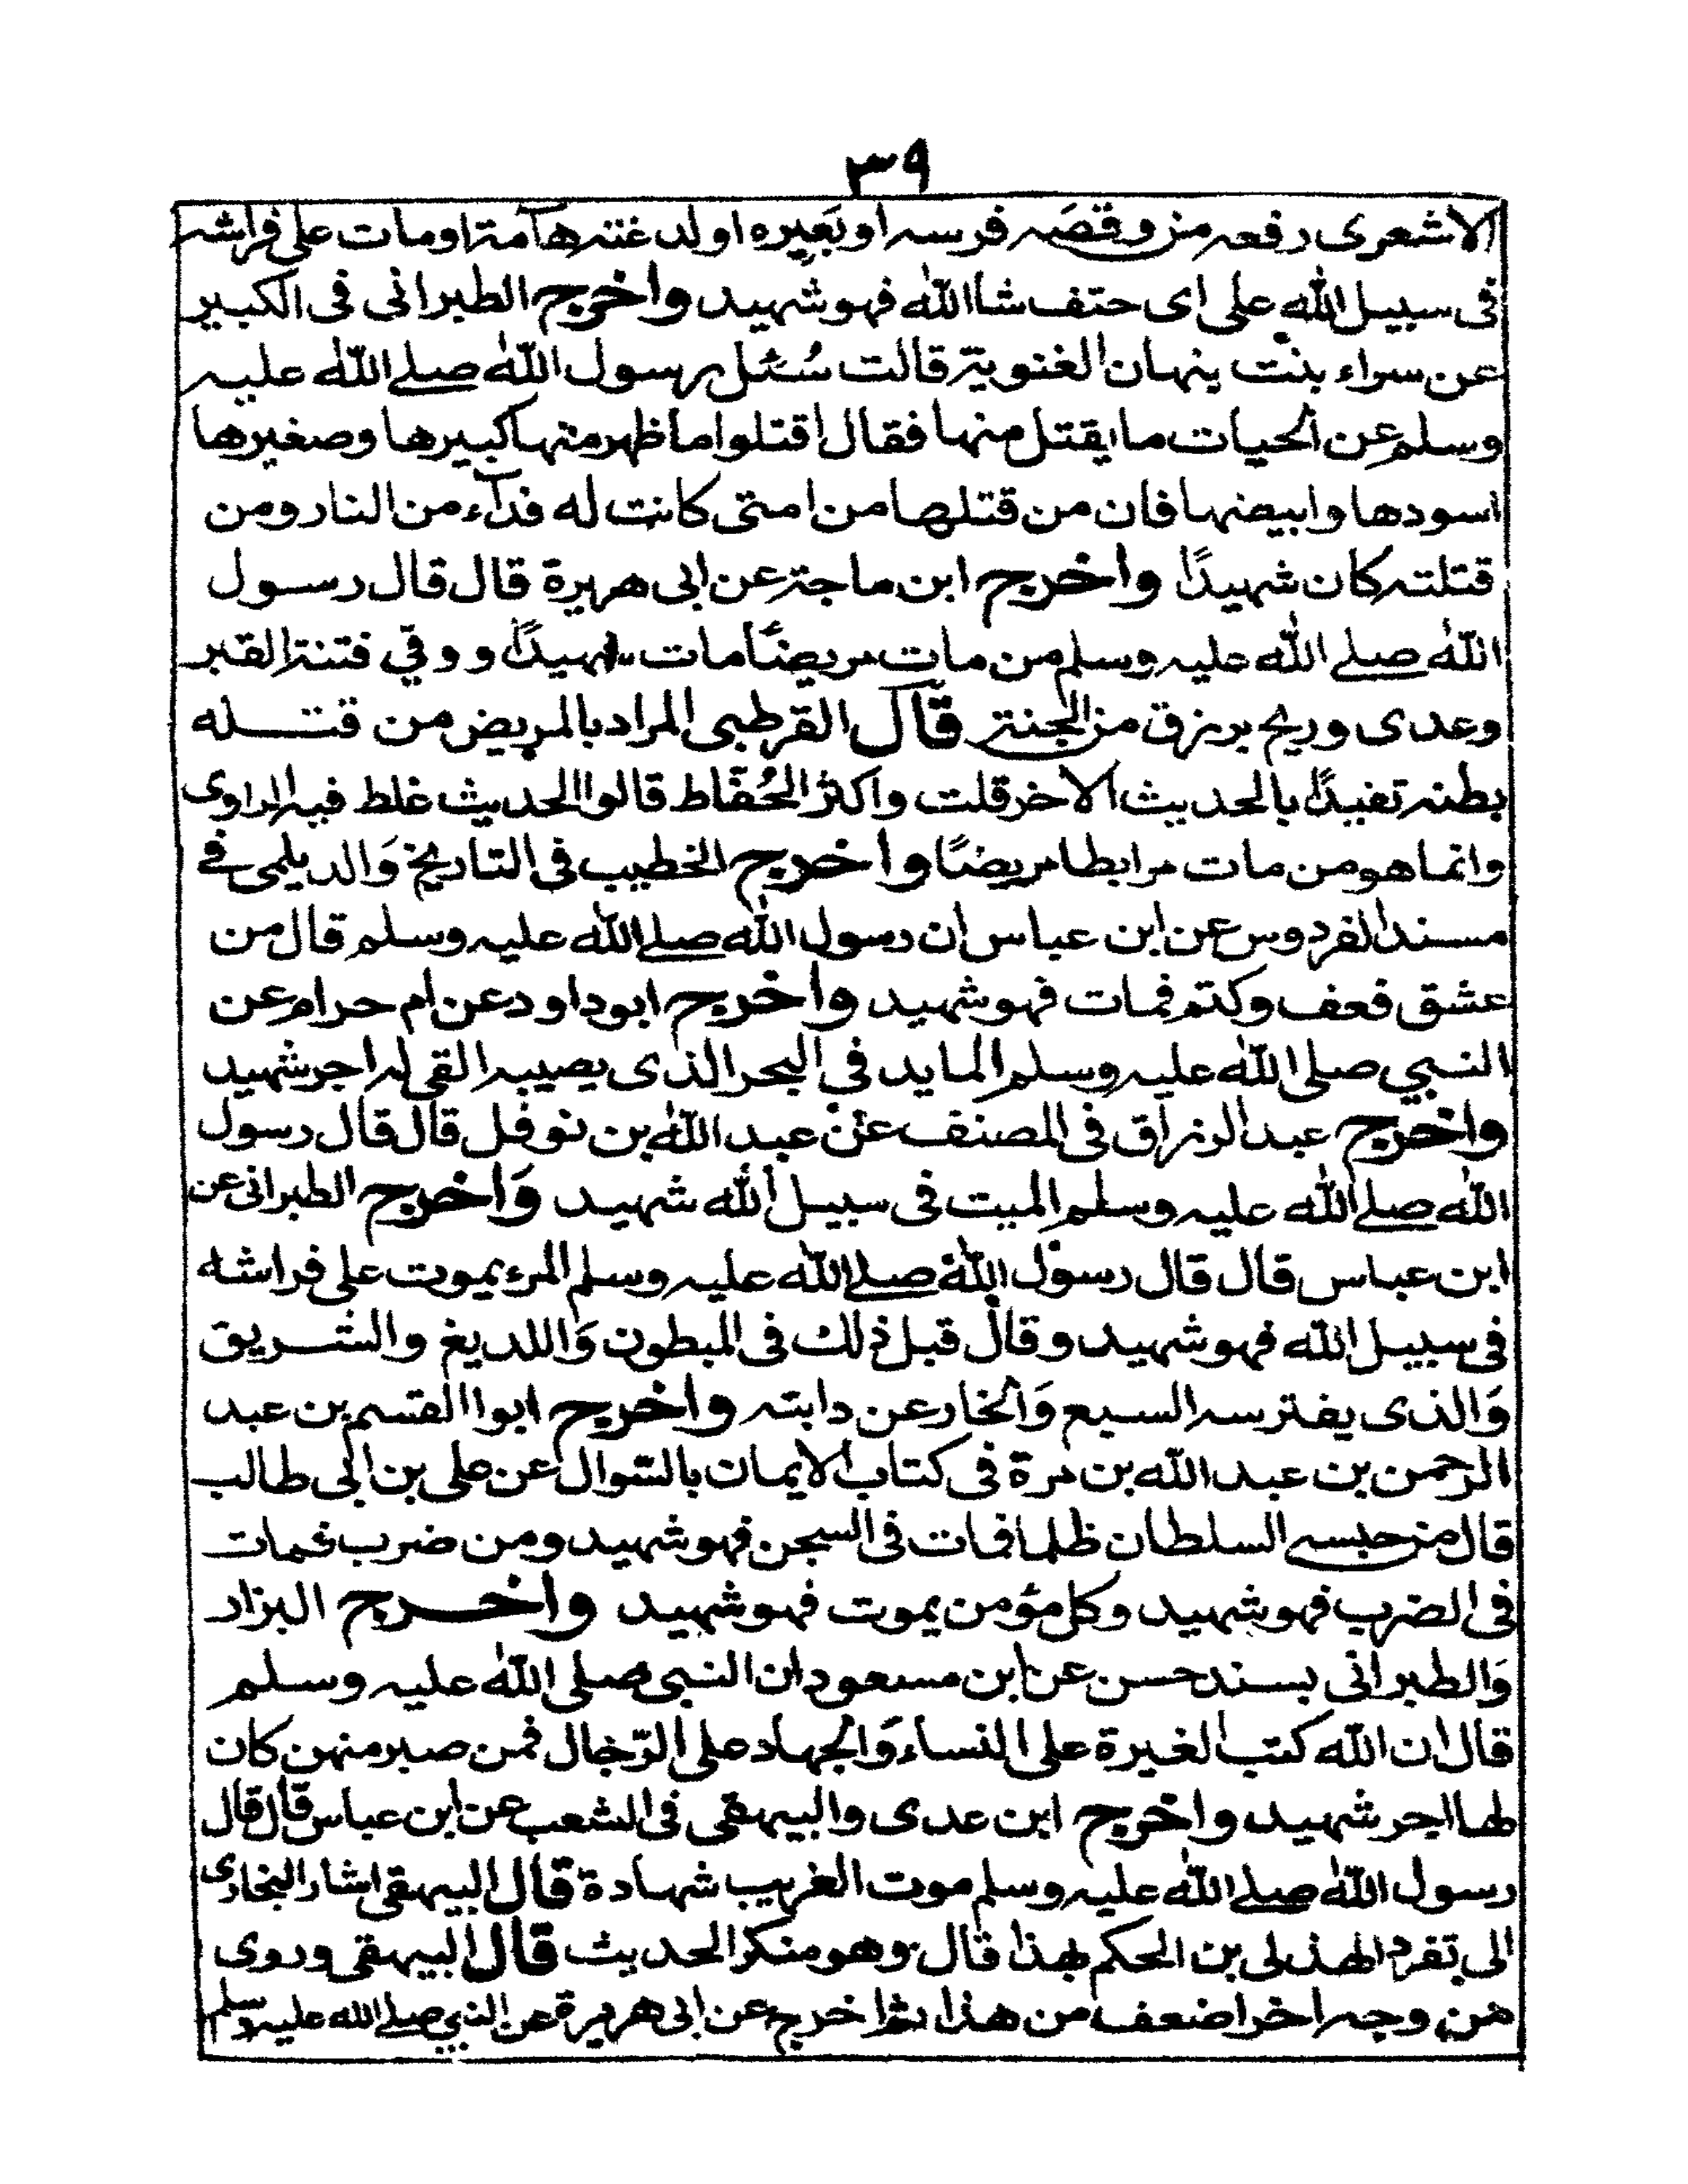 ٣٩
الاشعرى رفعه من وقصَه فرسه او بَعِيره اولدغته هآمة اومات على فراشه
فى سبيل الله على اى حتف شاالله فهو شهيد واخرج الطبرانى فى الكبير
عن سراء بنت ينهان الغنوية قالت سُئل رسول الله صلے الله عليه
وسلم عن الحيات ما يقتل منها فقال اقتلوا ماظهر منها كبيرها وصغيرها
اسودها وابيضها فان من قتلها من امتى كانت له فدآء من النار ومن
قتلته كان شهيدًا واخرج ابن ماجة عن ابى هريرة قال قال رسول
الله صلے الله عليه وسلم من مات مريضًا مات شهيدًا ووقي فتنة القبر
وعدى وريح برزق من الجنة قال القرطبى المراد بالمريض من قتله
بطنه تفيدًا بالحديث الاخر قلت واكثر الحُفّاظ قالوا الحديث غلط فيه الراوى
وانما هو من مات مرابطا مريضًا واخرج الخطيب فى التاريخ وَالديلمى فے
مسند الفردوس عن ابن عباس ان رسول الله صلے الله عليه وسلم قال من
عشق فعف وكتم فمات فهو شهيد واخرج ابو داود عن ام حرام عن
النبي صلى الله عليه وسلم المايد فى البحر الذى يصيبه القى له اجر شهيد
واخرج عبد الرزاق فى المصنف عن عبد الله بن نوفل قال قال رسول
الله صلے الله عليه وسلم الميت فى سبيل الله شهيد وَاخرج الطبرانى عن
ابن عباس قال قال رسول الله صلے الله عليه وسلم المرء يموت على فراشه
فى سبيل الله فهو شهيد وقال قبل ذلك فى المبطون وَاللديغ والشريق
وَالذى يفترسه السبع وَالخار عن دابته واخرج ابوا القسم بن عبد
الرحمن بن عبد الله بن مرة فى كتاب الايمان بالسوال عن على بن ابى طالب
قال من حبسه السلطان ظلما فمات فى السجن فهو شهيد ومن ضرب فمات
فى الضرب فهو شهيد وكل مؤمن يموت فهو شهيد واخرج البزار
وَالطبرانى بسند حسن عن ابن مسعود ان النبى صلى الله عليه وسلم
قال ان الله كتب الغيرة على النساء وَالجهاد على الرّجال فمن صبر منهن كان
لها اجر شهيد واخرج ابن عدى والبيهقى فى الشعب عن ابن عباس قال قال
رسول الله صلے الله عليه وسلم موت الغريب شهادة قال البيهقى اشار البخارى
الى تفرد الهذلى بن الحكم بهذا قال وهو منكر الحديث قال البيهقى وروى
من وجه اخر اضعف من هذا ثم اخرج عن ابى هريرة عن النبي صلے الله عليه وسلم